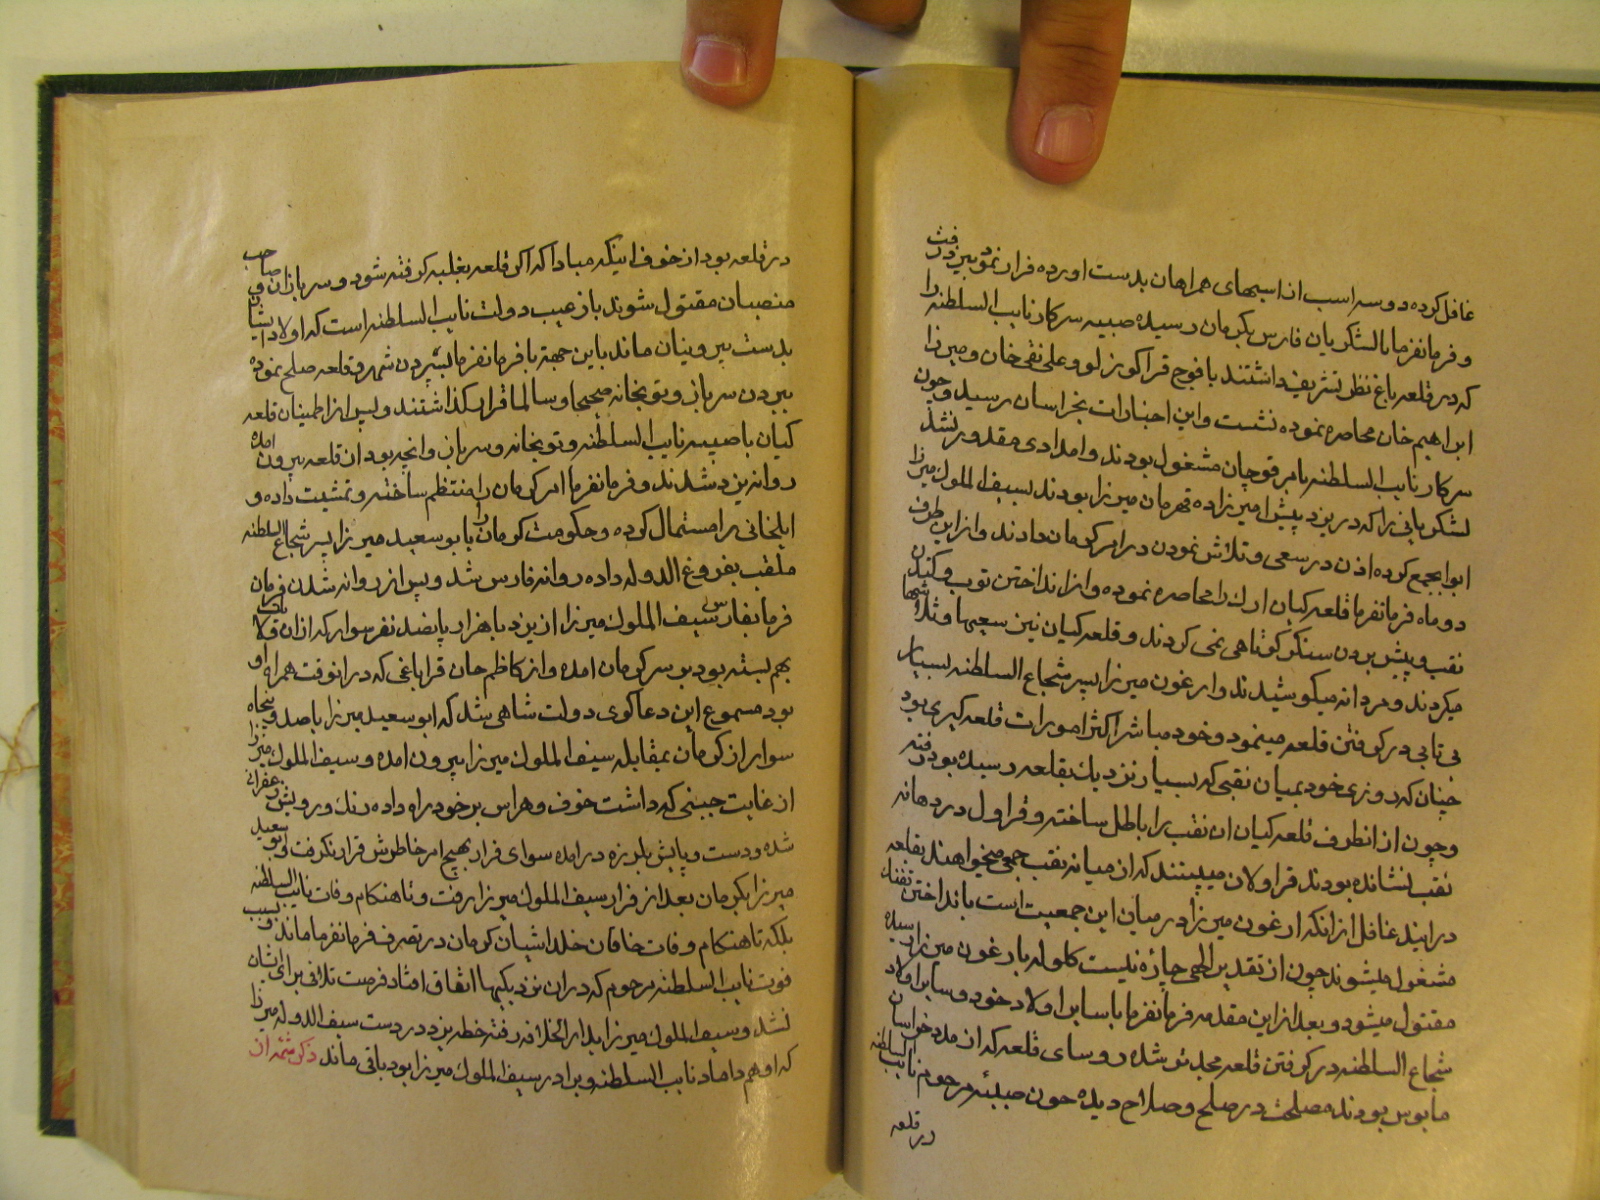 غافل کرده دو سه اسب از اسبهای همراهان بدست اورده فرار نمود بیزد رفت
و فرمانفرما با لشکریان فارس بکرمان رسیده صبیه سرکار نایب السلطنه را
که در قلعه باغ نظر تشریف داشتند با فوج قراکوزلو و علی نقی خان و میرزا
ابراهیم خان محاصره نموده نشست و این اخبارات بخراسان رسید و چون
سرکار نایب السلطنه بامر قوچان مشغول بودند و امدادی مقدور نشد
لشکریانی را که در یزد پیش امیرزاده قهرمان میرزا بودند بسیف الملوک میرزا
ابوابجمع کرده اذن در سعی و تلاش نمودن در امر کرمان دادند و از این طرف
دو ماه فرمانفرما قلعه کیان ارک را محاصره نموده و از انداختن توپ و کندن
نقب و پیش بردن سنکر کوتاهی نمی کردند و قلعه کیان نیز سعیها و تلاشها
میکردند و مردانه میکوشیدند و ارغون میرزا پسر شجاع السلطنه بسیار
بی تابی در کرفتن قلعه مینمود و خود مباشر اکثر امورات قلعه کیری بود
چنان که روزی خود بمیان نقبی که بسیار نزدیک بقلعه رسیده بود رفته
و چون از انطرف قلعه کیان ان نقب را باطل ساخته و قراول در دهانه
نقب نشانده بودند قراولان میبینند که از میانه نقب جمعی میخواهند بقلعه
درایند غافل از انکه ارغون میرزا در میان این جمعیت است بانداختن تفنک
مشغول میشوند چون از تقدیر الهی چاره نیست کلوله بارغون میرزا رسیده
مقتول میشود و بعد از این مقدمه فرمانفرما با سایر اولاد خود و سایر اولاد
شجاع السلطنه در کرفتن قلعه مجد تر شده روسای قلعه که از مدد خراسان
مایوس بودند مصلحت در صلح و صلاح دیده چون صبیه مرحوم نایب السلطنه
در قلعه
در قلعه بود از خوف اینکه مبادا که اکر قلعه بغلبه کرفته شود و سربازان و صاحب
منصبان مقتول شوند باز عیب دولت نایب السلطنه است که اولاد ایشان
بدست بیرونیان ماند باین جهة با فرمانفرما بسپردن شهر و قلعه صلح نموده
ببردن سرباز و توپخانه صحیحا و سالما قرار کذاشتند و پس از اطمینان قلعه
کیان با صبیه نایب السلطنه و توپخانه و سرباز و انچه بود از قلعه بیرون امده
روانه یزد شدند و فرمانفرما امر کرمان را منتظم ساخته و تمشیت داده و
ایلخانی را مستمال کرده و حکومت کرمان را بابو سعید میرزا پسر شجاع السلطنه
ملقب بفروغ الدوله داده روانه فارس شد و پس از روانه شدن فرمان
فرما بفارس سیف الملوک میرزا از یزد با هزار پانصد نفر سوار که از ان ولایت
بهم بسته بود بر سر کرمان امده و از کاظم خان قراباغی که در انوقت همراه او
بود مسموع این دعاکوی دولت شاهی شد که ابو سعید میرزا با صد و پنجاه
سوار از کرمان بمقابله سیف الملوک میرزا بیرون امده و سیف الملوک میرزا
از غایت جبنی که داشت خوف و هراس بر خود راه داده رنک و رویش زعفرانی
شده و دست و پایش بلرزه در امده سوای فرار بهیچ امر خاطرش قرار نکرفت و ابو سعید
میرزا بکرمان بعد از فرار سیف الملوک میرزا رفت و تا هنکام وفات نایب السلطنه
بلکه تا هنکام وفات خاقان خلد اشیان کرمان در تصرف فرمانفرما ماند و بسبب
فوت نایب السلطنه مرحوم که در ان نزدیکیها اتفاق افتاد فرصت تلافی برای ایشان
نشد و سیف الملوک میرزا بدار الخلافه رفته خطه یزد در دست سیف الدوله میرزا
که او هم داماد نایب السلطنه و برادر سیف الملوک میرزا بود باقی ماند ذکر شمه از